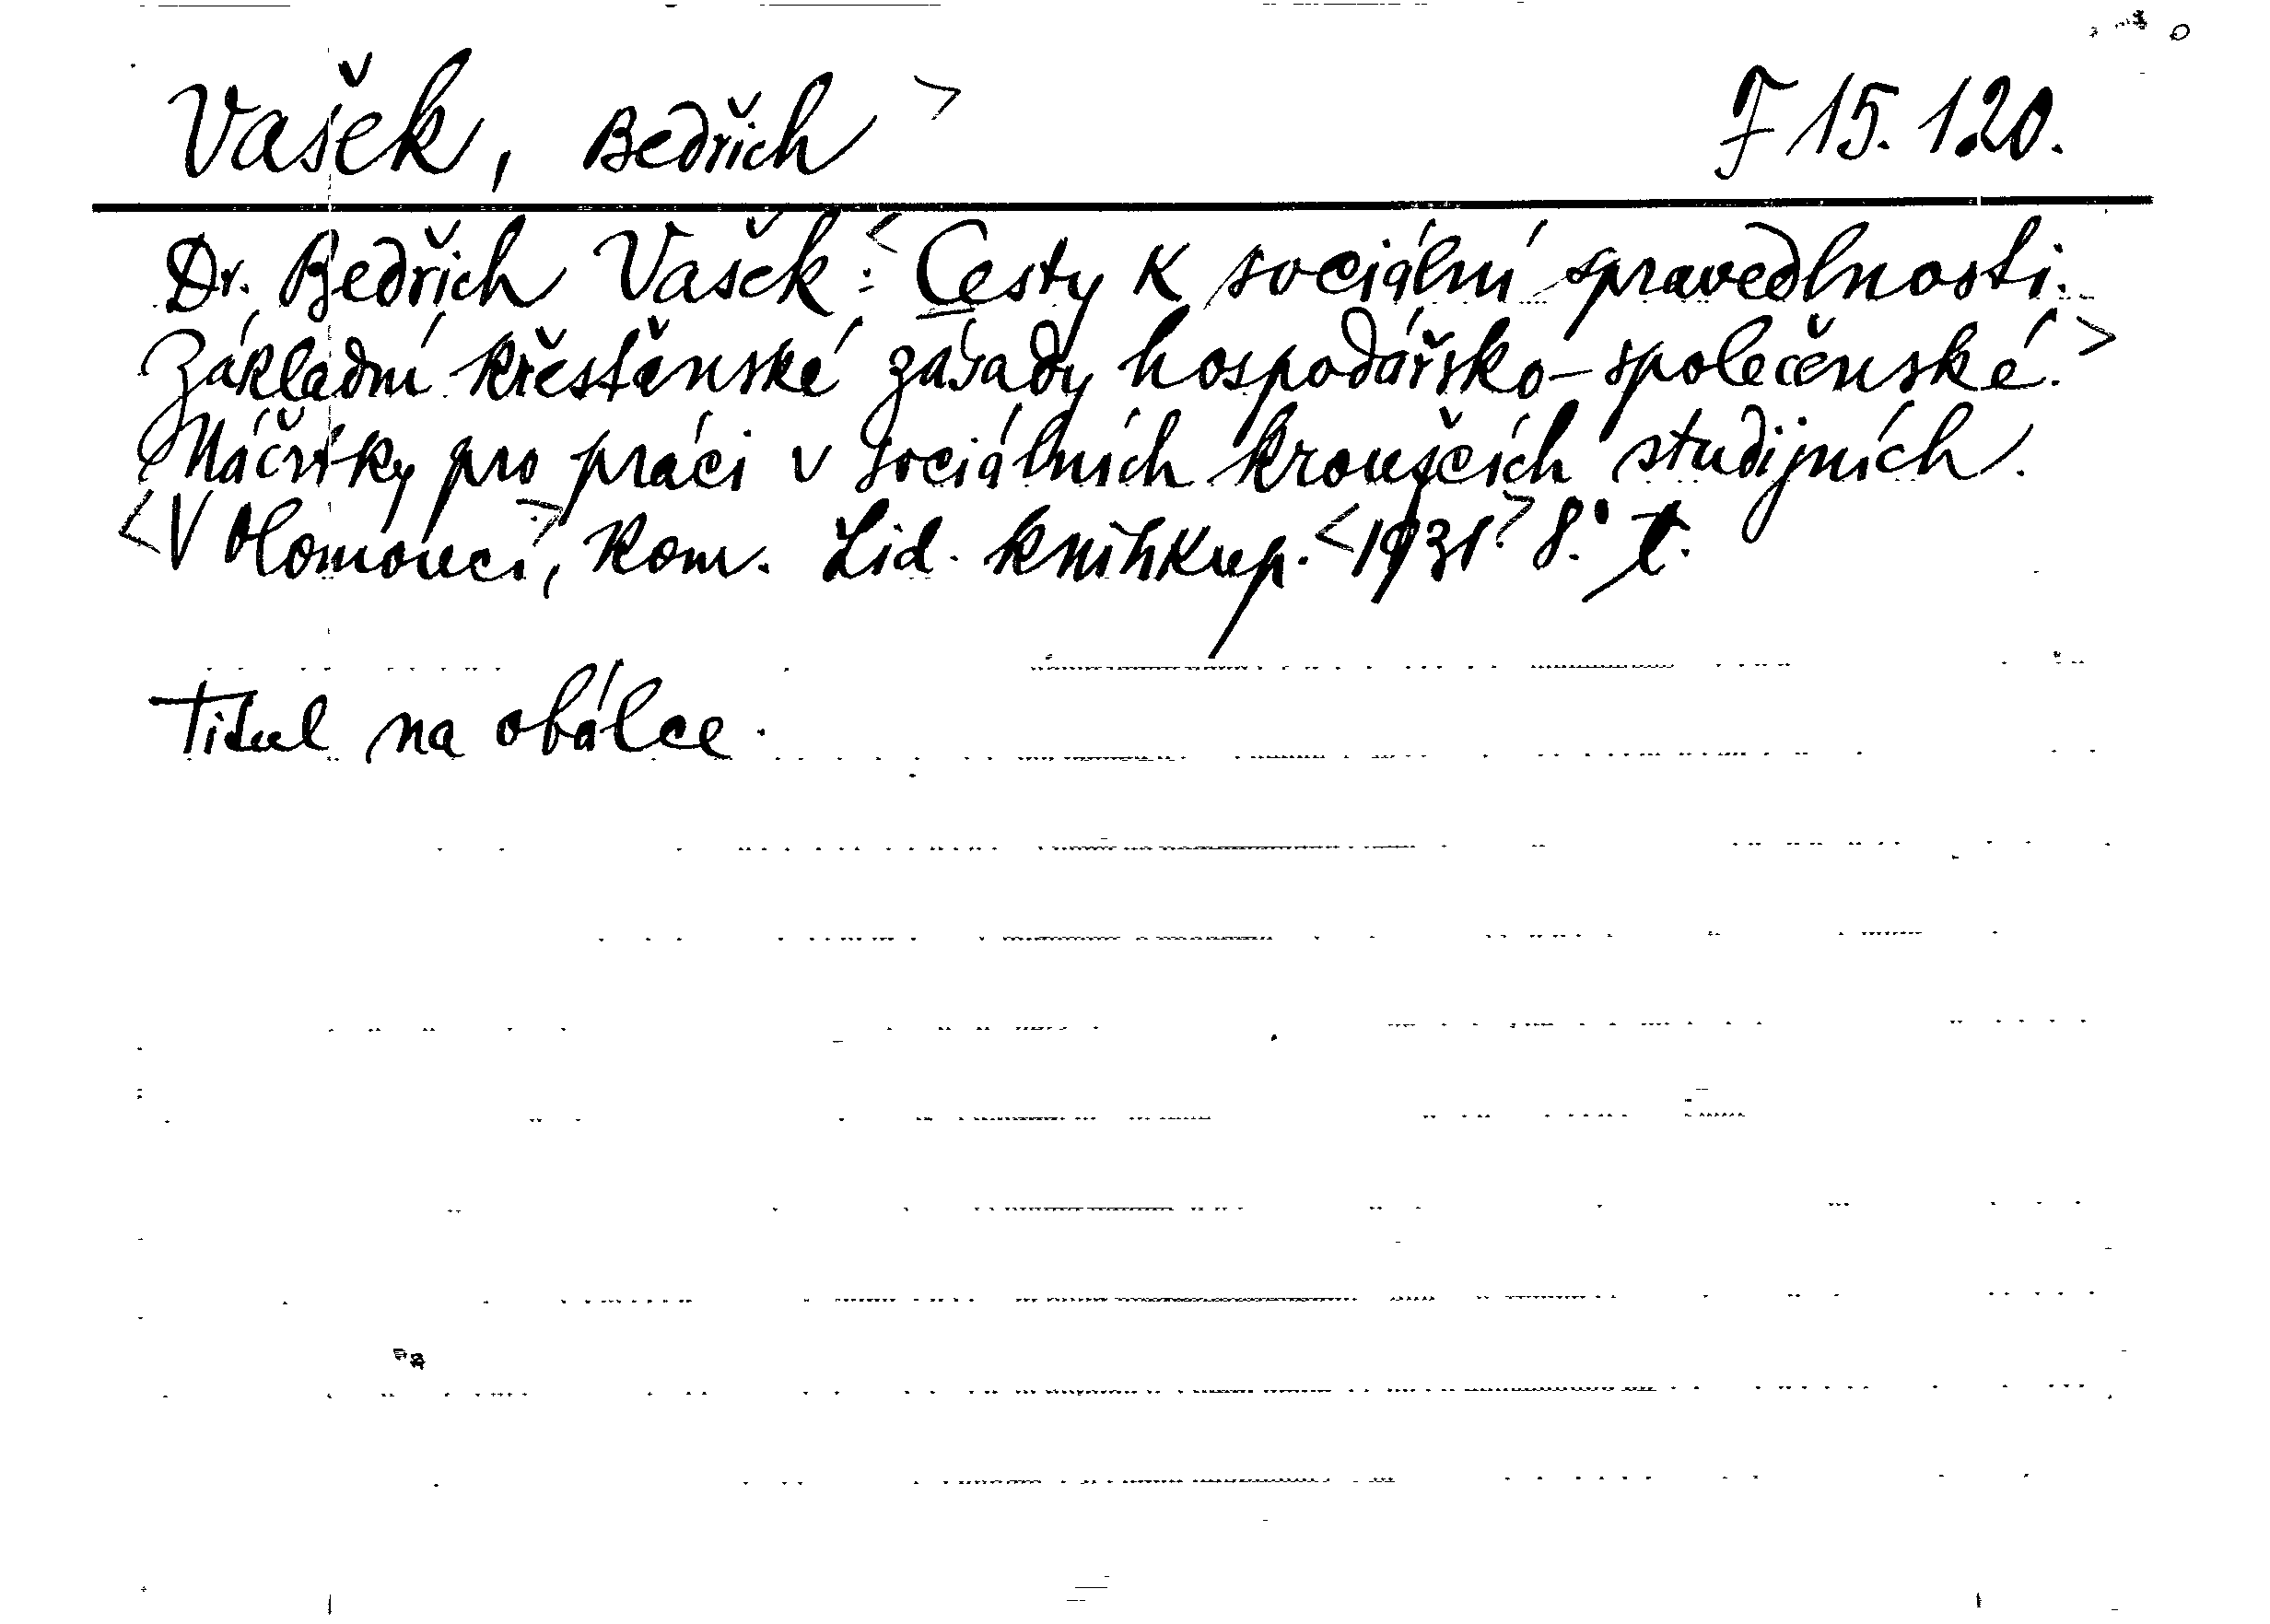 Vašek, Bedřich > F 15.120.
Dr. Bedřich Vašek: <Cesty k sociální spravedlnosti.
Základní křesťanské zásady hospodářsko-společenské.>
Náčrtky pro práci v sociálních kroužcích studijních.
<V Olomouci>, Kom. Lid. knihkup. <1931> 8.°
Titul na obálce.